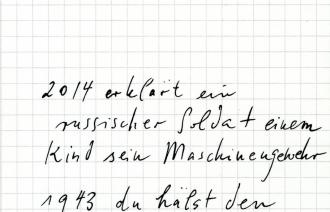 2014 erklärt ein
russischer Soldat einem
Kind sein Maschinengewehr
1943 du hälst den